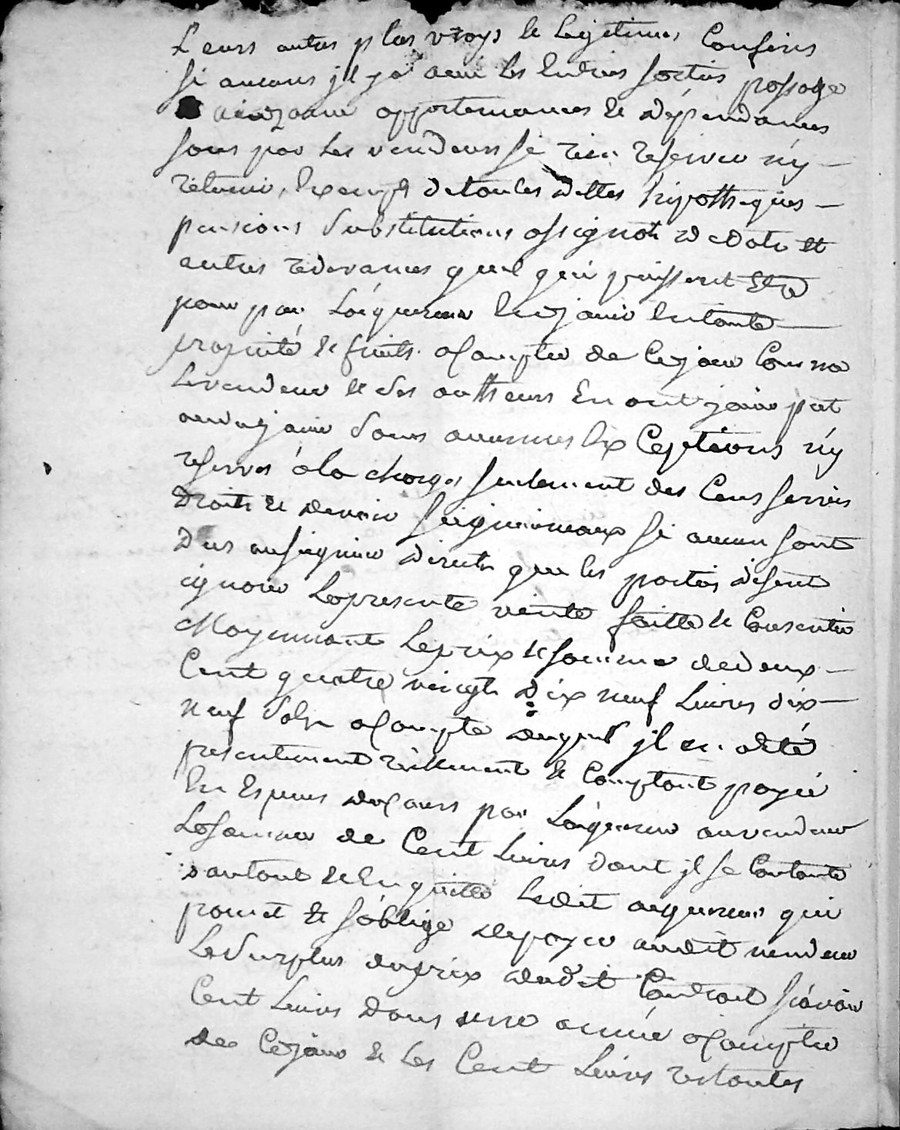 Leurs autres plus vrays & legitimes Confins
si aucuns jl y a avec les Entrées sorties passage
appartenances & dépendances
sans par les vendeurs se rien reserver n'y
retenir, Exempt de toutes dettes hipotheques
pensions substitutions assignats de dote et
autres redevances quel qu'ù puissent Etre
pour par L'aquereur En jouir En toute
proprieté & fruits a Compter de Ce jour Comme
Le vendeur & ses autheurs En ont jouy pet
ou du jouir sans aucunes Ex Ceptions n'y
reserves à la charge seulement des Cens servis
droits & devoir seigneuriaux si aucun sont
dus au seigneur direct que les parties disent
ignorer La presente vente faitte & Consentie
Moyennant Le prix & somme de deux
Cent quatre vingt dix neuf Livres dix
neuf sols a Compte duquel jl en a été
presentement réellement & Comptant payé
En Especes de Cours par L'aquereur au vendeur
La somme de Cent Livres dont jl se Contante
d'autant & En quitte Ledit aquereur qui
promet & s'oblige de payer audit vendeur
Le surplus du prix dudit Contrait sçavoir
Cent Livres dans une année a Compter
de Ce jour & Les Cent Livres restantes